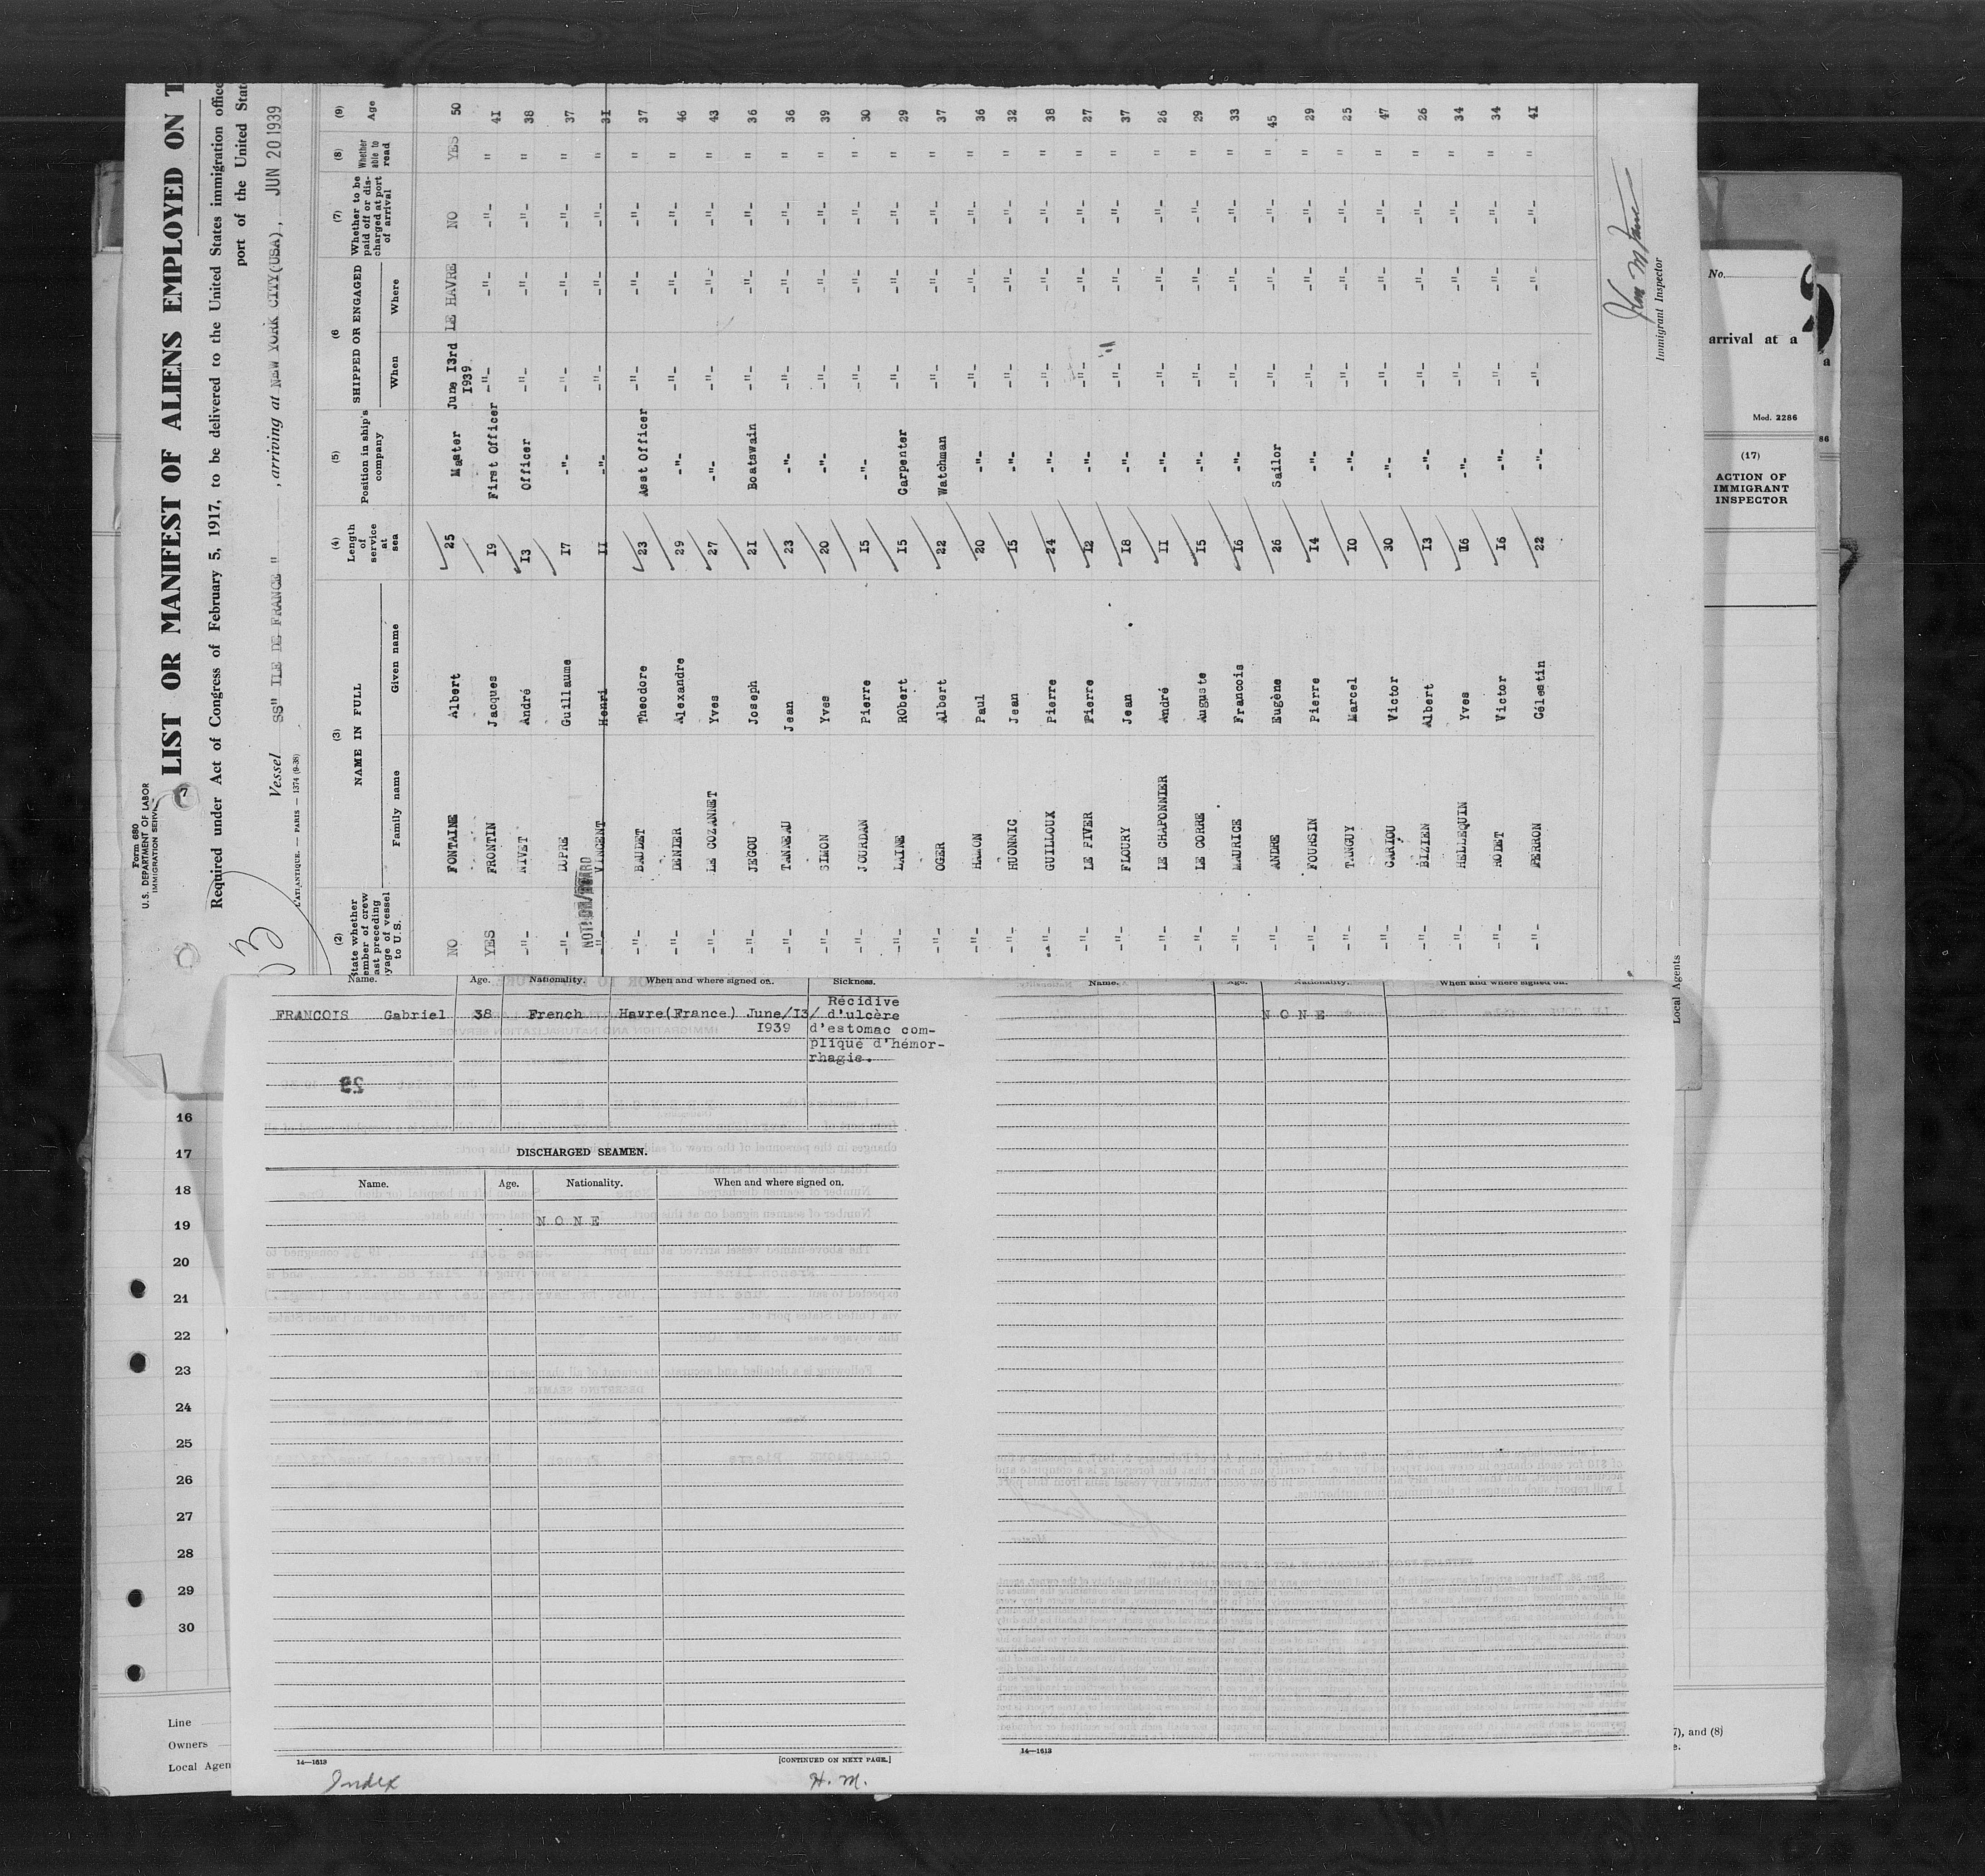 Form 680
U.S. DEPARTMENT OF LABOR
IMMIGRATION
LIST OR MANIFEST OF ALIENS EMPLOYED ON T
Required under Act of Congress of February 5, 1917, to be delivered to the United States immigration office
port of the United Stat
Vessel SS" ILE DE FRANCE " , arriving at NEW YORK CITY(USA), JUN 20 1939
L'ATLANTIQUE. — PARIS — 1374 (9-38)
(2) (3) (4) (5) (6 (7) (8) (9)
State whether ember of crew ast preceding yage of vessel to U.S. NAME IN FULL Family name Given name Length of service at sea Position in ship's company SHIPPED OR ENGAGED When Where Whether to be paid off or discharged at port of arrival Whether able to read Age
NO FONTAINE Albert 25 Master June 13rd 1939 LE HAVRE NO YES 50
YES FRONTIN Jacques 19 First Officer -"- -"- -"- " 41
-"- NIVET André 13 Officer -"- -"- -"- " 38
-"- DUPRE Guillaume 17 -"- -"- -"- -"- " 37
NOT ON BOARD
-"- VINCENT Henri 11 -"- -"- -"- -"- " 31
-"- BAUDET Theodore 23 Asst Officer -"- -"- -"- " 37
-"- DENIER Alexandre 29 -"- -"- -"- -"- " 46
-"- LE COZANNET Yves 27 -"- -"- -"- -"- " 43
-"- JEGOU Joseph 21 Boatswain -"- -"- -"- " 36
-"- TANDEAU Jean 23 -"- -"- -"- -"- " 36
-"- SIMON Yves 20 -"- -"- -"- -"- " 39
-"- JOURDAN Pierre 15 -"- -"- -"- -"- " 30
-"- LAINE RObert 15 Carpenter -"- -"- -"- " 29
-"- OGER Albert 22 Watchman -"- -"- -"- " 37
-"- HAMON Paul 20 -"- -"- -"- -"- " 36
-"- HUONNIC Jean 15 -"- -"- -"- -"- " 32
-"- GUILLOUX Pierre 24 -"- -"- -"- -"- " 38
-"- LE FIVER Pierre 12 -"- -"- -"- -"- " 27
-"- FLOURY Jean 18 -"- -"- -"- -"- " 37
-"- LE CHAPONNIER André 11 -"- -"- -"- -"- " 26
-"- LE CORRE Auguste 15 -"- -"- -"- -"- " 29
-"- MAURICE Francois 16 -"- -"- -"- -"- " 33
-"- ANDRE Eugène 26 Sailor -"- -"- -"- " 45
-"- FOURSIN Pierre 14 -"- -"- -"- -"- " 29
-"- TANGUY Marcel 10 -"- -"- -"- -"- " 25
-"- CARIOU Victor 30 -"- -"- -"- -"- " 47
-"- BIZIEN Albert 13 -"- -"- -"- -"- " 26
-"- HELLEQUIN Yves 16 -"- -"- -"- -"- " 34
-"- RODET Victor 16 -"- -"- -"- -"- " 34
-"- PERRON Célestin 22 -"- -"- -"- -"- " 41
Immigrant Inspector
Local Agents
No.
arrival at a
a
Mod. 2286
86
(17)
ACTION OF
IMMIGRANT
INSPECTOR
Name. Age. Nationality. When and where signed on. Sickness.
FRANCOIS Gabriel 38 French Havre(France) June/13/ 1939 Récidive
d'ulcère
d'estomac com-
pliqué d'hémor-
rhagie.
23
DISCHARGED SEAMEN.
Name. Age. Nationality. When and where signed on.
N O N E
14—1613 [CONTINUED ON NEXT PAGE.]
Index H. M.
Name. Age. Nationality. When and where signed on.
N O N E
14—1613
16
17
18
19
20
21
22
23
24
25
26
27
28
29
30
Line
Owners
Local Agen
7), and (8)